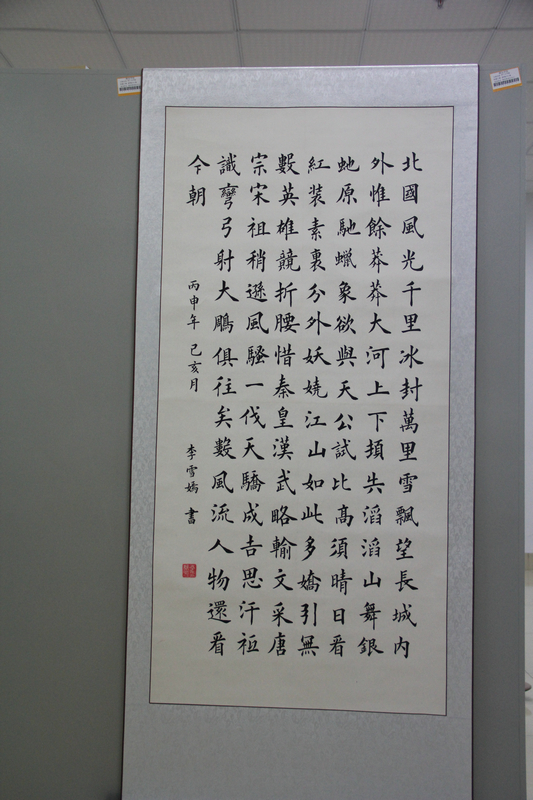 北國風光千里冰封萬里雪飄望長城内
外惟餘莽莽大河上下頓失滔滔山舞銀
虵原馳蠟象欲與天公試比高須晴日看
紅装素裹分外妖嬈江山如此多嬌引無
數英雄競折腰惜秦皇漢武略輸文采唐
宗宋祖稍遜風騷一代天驕成吉思汗衹
識彎弓射大鵰俱往矣數風流人物還看
今朝
丙申年 己亥月 李雪嫣 書